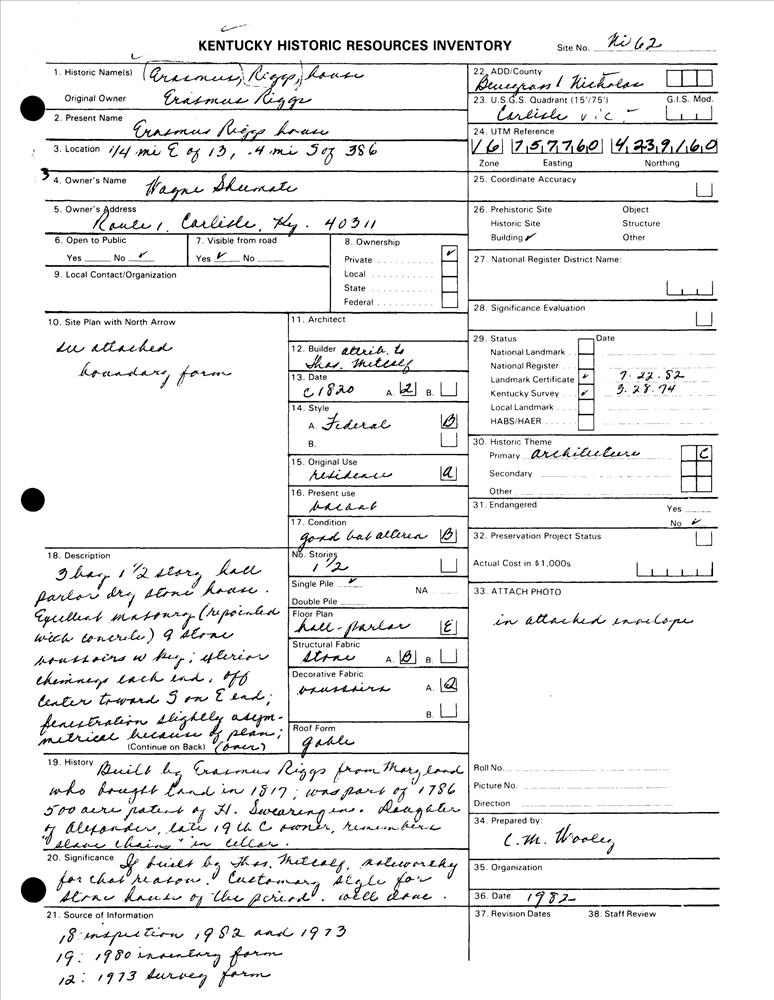 KENTUCKY HISTORIC RESOURCES INVENTORY
Site No. Ni 62
1. Historic Name(s) (Erasmus, Riggs,) house
Original Owner Erasmus Riggs
2. Present Name Erasmus Riggs house
3. Location 1/4 mi E of 13, .4 mi S of 386
3
4. Owner's Name Wayne Shumate
5. Owner's Address
Route 1, Carlisle, Ky. 40311
6. Open to Public
Yes No ✓
7. Visible from road
Yes ✓ No
8. Ownership
Private ✓
Local
State
Federal
9. Local Contact/Organization
10. Site Plan with North Arrow
see attached
boundary form
11. Architect
12. Builder attrib. to
Thos. Metcalf
13. Date
c 1820 A. 2 B.
14. Style
A. Federal B
B.
15. Original Use
residence a
16. Present use
vacant
17. Condition
good but altered B
No. Stories
1 1/2
Single Pile ✓
NA
Double Pile
Floor Plan
hall-parlor E
Structural Fabric
stone A. B B.
Decorative Fabric
voussoirs A. Q
B.
Roof Form
gable
18. Description
3 bay 1 1/2 story hall
parlor dry stone house.
Excellent masonry (repointed
with concrete) 9 stone
voussoirs w key; exterior
chimneys each end, off
center toward S on E end;
fenestration slightly asym-
metrical because of plan;
(Continue on Back) (over)
19. History Built by Erasmus Riggs from Maryland
who bought land in 1817; was part of 1786
500 acre patent of H. Swearingen. Daughter
of Alexander, late 19th C owner, remembers
"slave chains" in cellar.
20. Significance If built by Thos. Metcalf, noteworthy
for that reason. Customary style for
stone house of the period. Well done.
21. Source of Information
18: inspection 1982 and 1973
19: 1980 inventory form
12: 1973 survey form
22. ADD/County
Bluegrass / Nicholas
23. U.S.G.S. Quadrant (15'/75') G.I.S. Mod.
Carlisle
24. UTM Reference
16 757760 4239160
Zone Easting Northing
25. Coordinate Accuracy
26. Prehistoric Site Object
Historic Site Structure
Building ✓ Other
27. National Register District Name:
28. Significance Evaluation
29. Status Date
National Landmark
National Register
Landmark Certificate ✓ 7.22.82
Kentucky Survey ✓ 3.28.74
Local Landmark
HABS/HAER
30. Historic Theme
Primary architecture C
Secondary
Other
31. Endangered Yes
No ✓
32. Preservation Project Status
Actual Cost in $1,000s
33. ATTACH PHOTO
in attached envelope
Roll No.
Picture No.
Direction
34. Prepared by:
C. M. Wooley
35. Organization
36. Date 1982
37. Revision Dates 38. Staff Review